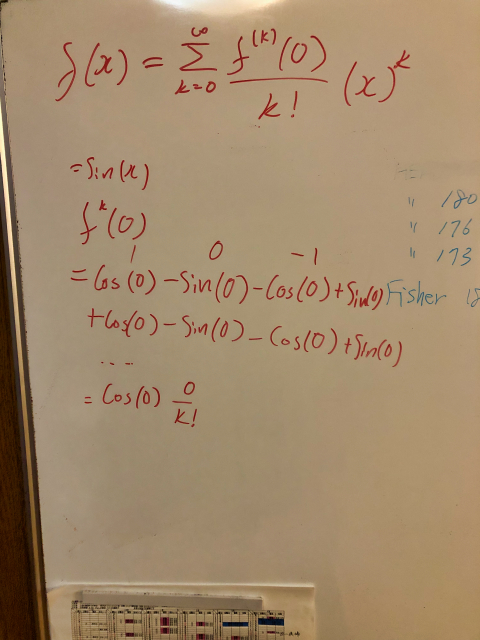 f(x) = ∞ Σ k=0 f^(k)(0) / k! (x)^k
= Sin(x)
f^k(0)
1 0 -1
= Cos(0) - Sin(0) - Cos(0) + Sin(0)
+ Cos(0) - Sin(0) - Cos(0) + Sin(0)
....
= Cos(0) 0 / k!
" 180
" 176
" 173
Fisher 18